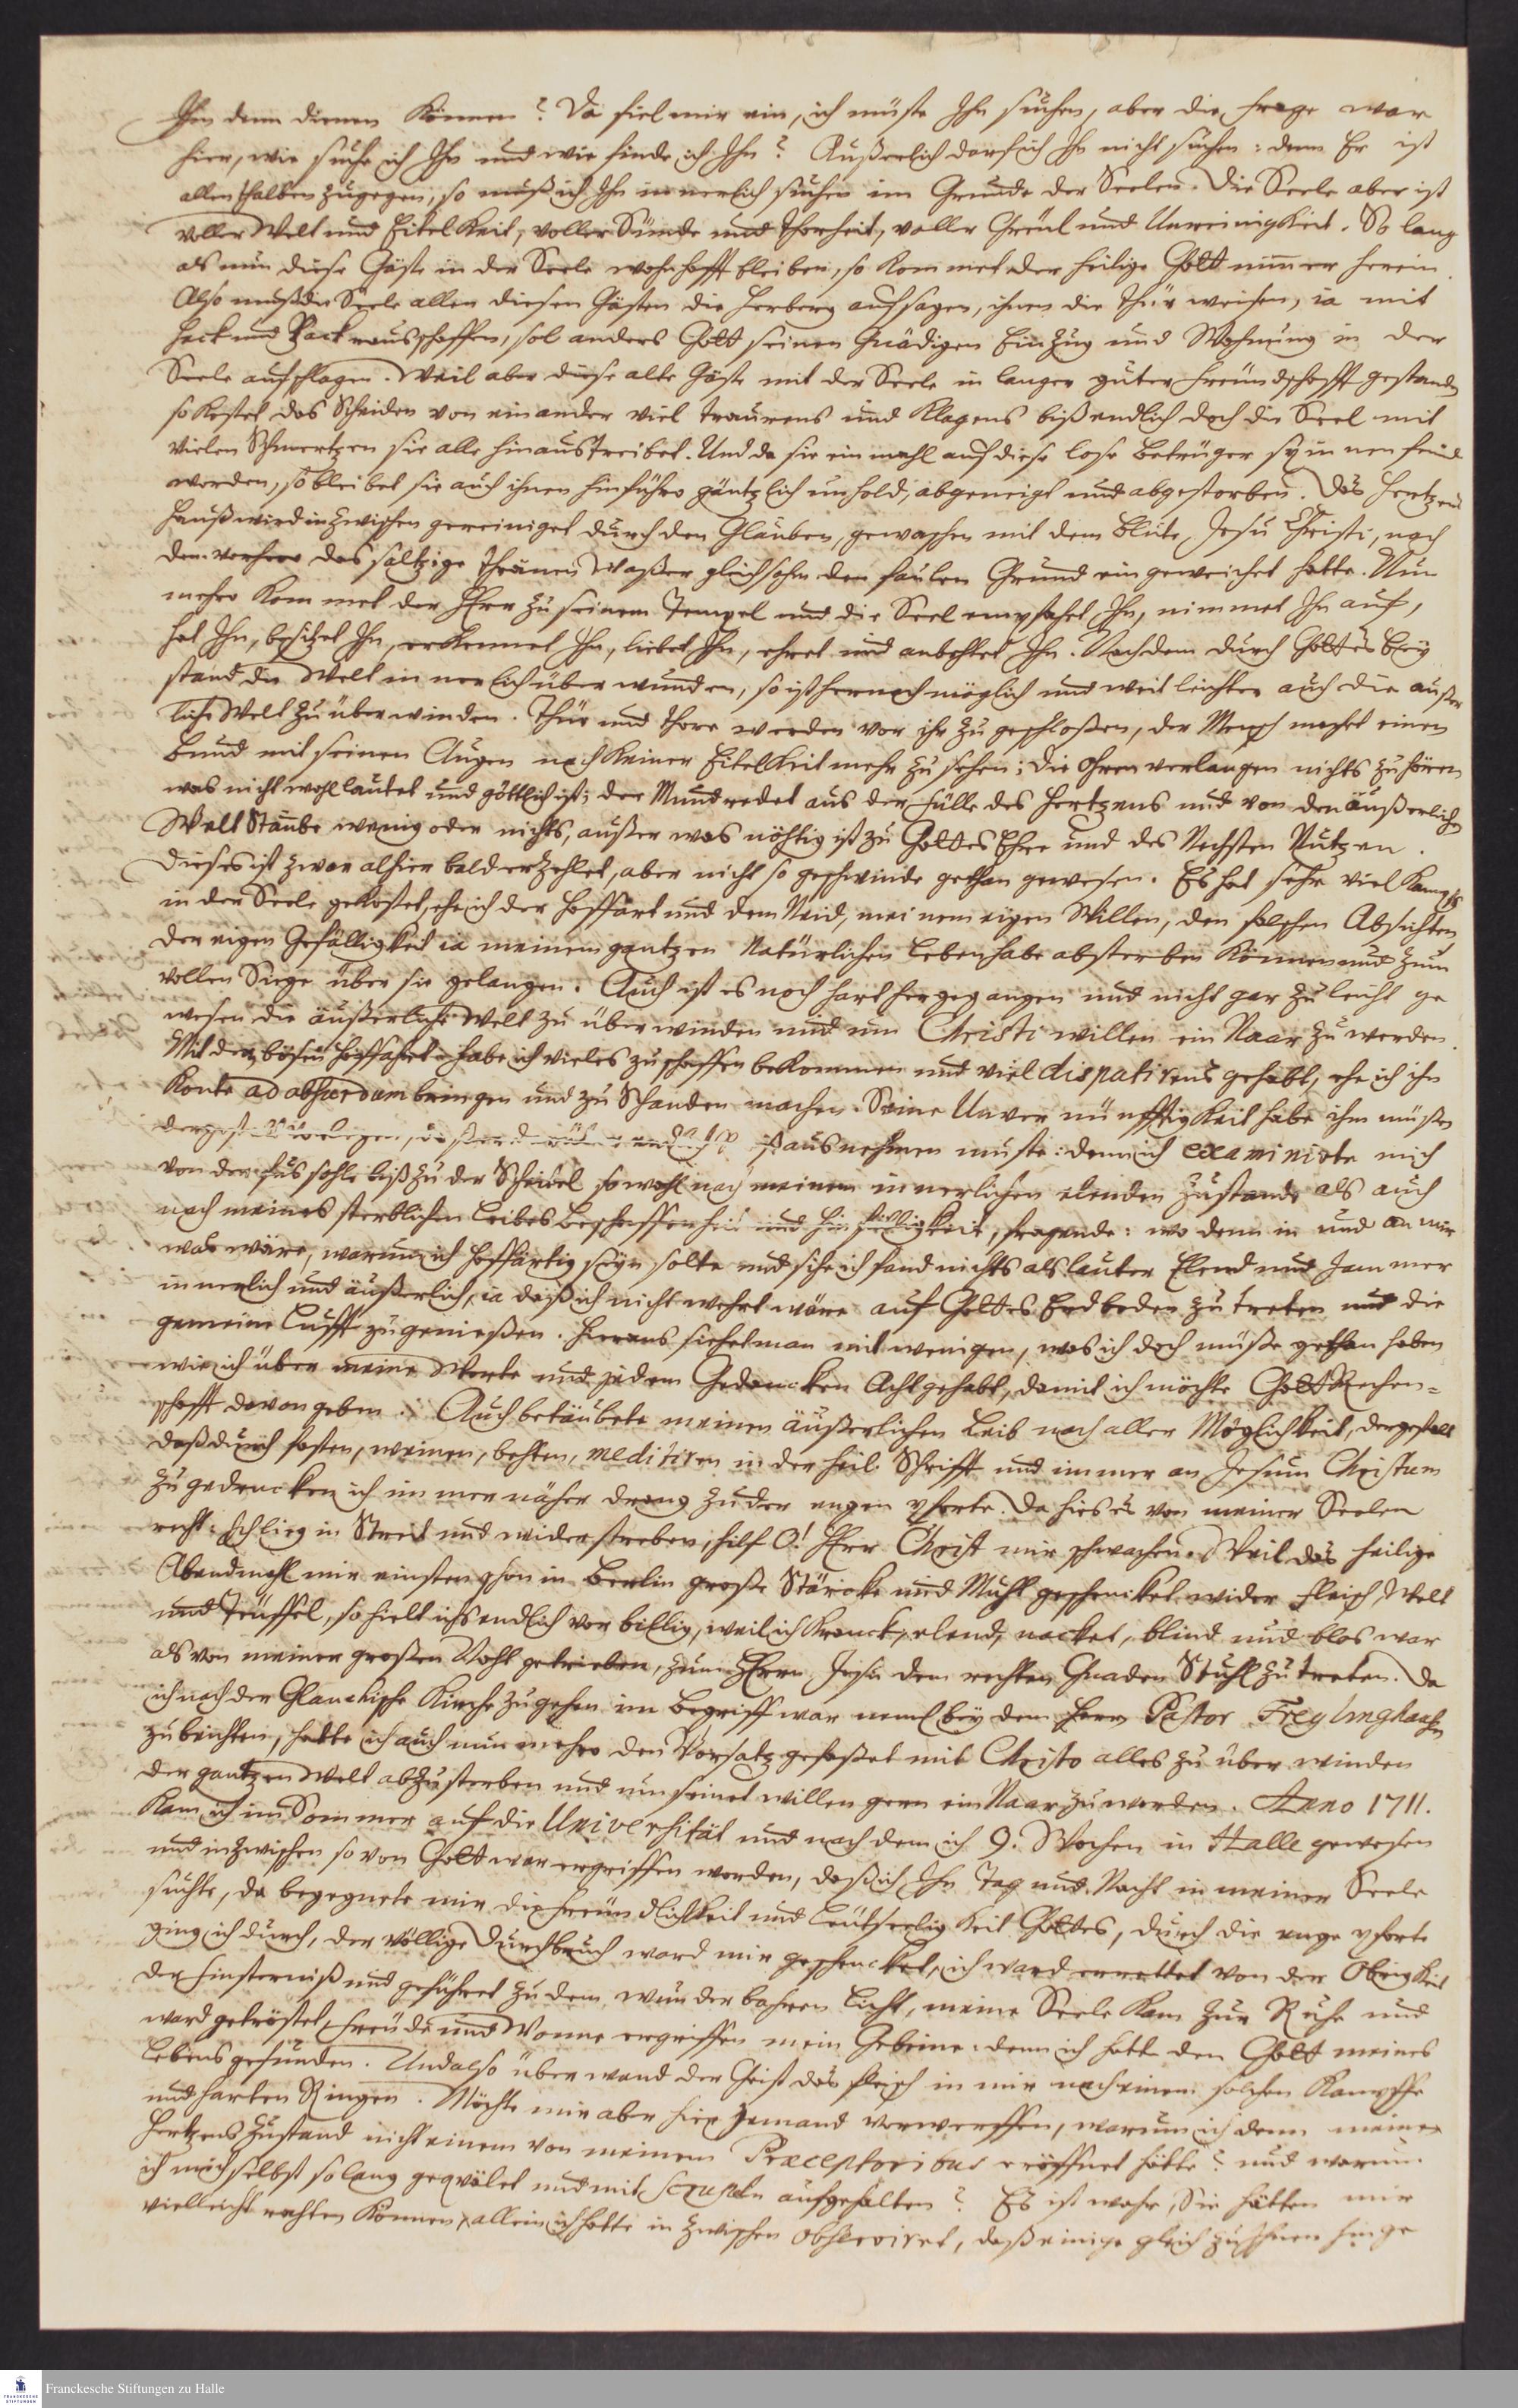 Ihm denn dienen können? Da fiel mir ein, ich müste Ihn suchen, aber die frage war
hier, wie suche ich Ihn und wie finde ich Ihn? Äußerlich darf ich Ihn nicht suchen: denn Er ist
allenthalben zugegen, so muß ich Ihn innerlich suchen im Grunde der Seelen. Die Seele aber ist
voller Welt und Eitelkeit, voller Sünde und Thorheit, voller Greüel und Unreinigkeit. So lang
als nun diese Gäste in der Seele wohnhafft bleiben, so kommet der heilige Gott nimmer herein.
Also muß die Seele allen diesen Gästen die Herberg aufsagen, ihnen die Thür weisen, ia mit
Sack und Pack rausschaffen, sol anders Gott seinen Gnädigen Einzug und Wohnung in der
Seele aufschlagen. Weil aber diese alte Gäste mit der Seele in langer guter freündschafft gestanden
so kostet das Scheiden von einander viel traurens und Klagens biß endlich doch die Seel mit
vielen Schmertzen sie alle hinaustreibet. Und da sie einmahl auf diese lose Betrüger spinnen feind
worden, so bleibet sie auch ihnen hinführo gäntzlich unhold, abgeneigt und abgestorben. Das Hertzens
Hauß wird inzwischen gereiniget durch den Glauben, gewaschen mit dem Blute Jesu Christi, nach
dem vorhero das saltzige Thränen Waßer gleichsahm den faulen Grund eingeweichet hatte. Nun
mehro kommet der Herr zu seinem Tempel und die Seel empfahet Ihn, nimmet Ihn auf,
hat Ihn, besitzet Ihn, erkennet Ihn, liebet Ihn, ehret und anbehtet Ihn. Nachdem durch Gottes Bey
stand die Welt innerlich überwunden, so ist hernach möglich und weit leichter auch die äußer
liche Welt zu überwinden. Thür und Thore werden vor ihr zu geschloßen, der Mensch machet einen
Bund mit seinen Augen nach keiner Eitelkeit mehr zu sehen; die Ohren verlangen nichts zu hören
was nicht wohl lautet und göttlich ist; der Mund redet aus der fülle des Hertzens und von den äußerlichen
Welt Staube wenig oder nichts, außer was nöhtig ist zu Gottes Ehre und des Nechsten Nutzen.
Dieses ist zwar alhier bald erzehlet, aber nicht so geschwinde gethan gewesen. Es hat sehr viel Kampfs
in der Seele gekostet, ehe ich der Hoffart und dem Neid, meinem eigen Willen, den falschen Absichten
der eigen Gefälligkeit ia meinem gantzen Natürlichen Leben habe absterben können und zum
vollen Siege über sie gelangen. Auch ist es noch hart hergegangen und nicht gar zu leicht ge
wesen die äußerliche Welt zu überwinden und um Christi willen ein Naar zu werden.
Mit dem bösen Hoffahrt habe ich vieles zu schaffen bekommen und viel disputirens gehabt, ehe ich ihn
konte ad absurdum bringen und zu Schanden machen. Seine Unvernünfftigkeit habe ihm müßen
ausnehmen muste: denn ich examinirte mich
von der fus sohle biß zu der Scheitel so wohl nach meinem innerlichen elenden Zustande als auch
nach meines sterblichen Leibes Beschaffenheit und Hinfälligkeit, fragende: wo denn in und an mir
was wäre, warum ich hoffärtig seyn solte und sihe ich fand nichts als lauter Elend und Jammer
innerlich und äußerlich, ia daß ich nicht wehrt wäre auf Gottes Erdboden zu treten und die
gemeine Lufft zu genießen. Hieraus siehet man mit wenigen, was ich doch müße gethan haben
wie ich über meine Worte und jedem Gedancken Acht gehabt, damit ich möchte Gott Rechen=
schafft davon geben. Auch betäubete meinen äußerlichen Leib nach aller Möglichkeit, dergestalt
daß durch fasten, weinen, behten, meditiren in der Heil. Schrifft und immer an Jesum Christum
zu gedencken ich immer näher drang zu der engen pforte. Da hies es von meiner Seelen
recht: Ich lieg in Streit und widerstreben, hilf O! Herr Christ mir schwachen. Weil das heilige
Abendmahl mir einsten schon in Berlin große Stärcke und Muht geschencket wider fleisch, Welt
und Teüffel, so hielt ichs endlich vor billig, weil ich kranck, elend, nacket, blind und blos war
als von meiner großen Noht getrieben, zum Herrn Jesu dem rechten Gnaden Stuhl zu treten. Da
ich nach der Glauchische Kirche zu gehen im Begriff war neml. bey dem Herrn Pastor Freylinghausen
zu beichten, hatte ich auch nunmehro den Vorsatz gefaßet mit Christo alles zu überwinden
der gantzen Welt abzusterben und um seinet willen gern ein Naar zu werden. Anno 1711.
kam ich im Sommer auf die Universität und nach dem ich 9. Wochen in Halle gewesen
und inzwischen so von Gott war ergriffen worden, daß ich Ihn Tag und Nacht in meiner Seele
suchte, da begegnete mir die freündlichkeit und Leütseeligkeit Gottes, durch die enge pforte
ging ich durch, der völlige Durchbruch ward mir geschencket, ich ward errettet von der Obrigkeit
der finsterniß und geführet zu dem wunderbahren Licht, meine Seele kam zur Ruhe und
ward getröstet, freüde und Wonne ergriffen mein Gebeine: denn ich hatte den Gott meines
Lebens gefunden. Und also überwand der Geist das fleisch in mir nach einem solchen Kampffe
und harten Ringen. Möchte mir aber hier Jemand vorwerffen, warum ich denn meines
Hertzens Zustand nicht einem von meinem Præceptoribus eröffnet hätte? und warum
ich mich selbst so lang geqvälet und mit scrupeln aufgehalten? Es ist wahr, Sie hätten mir
vielleicht rahten können, allein ich hatte inzwischen observiret, daß einige gleich zu Ihnen hinge
Franckesche Stiftungen zu Halle